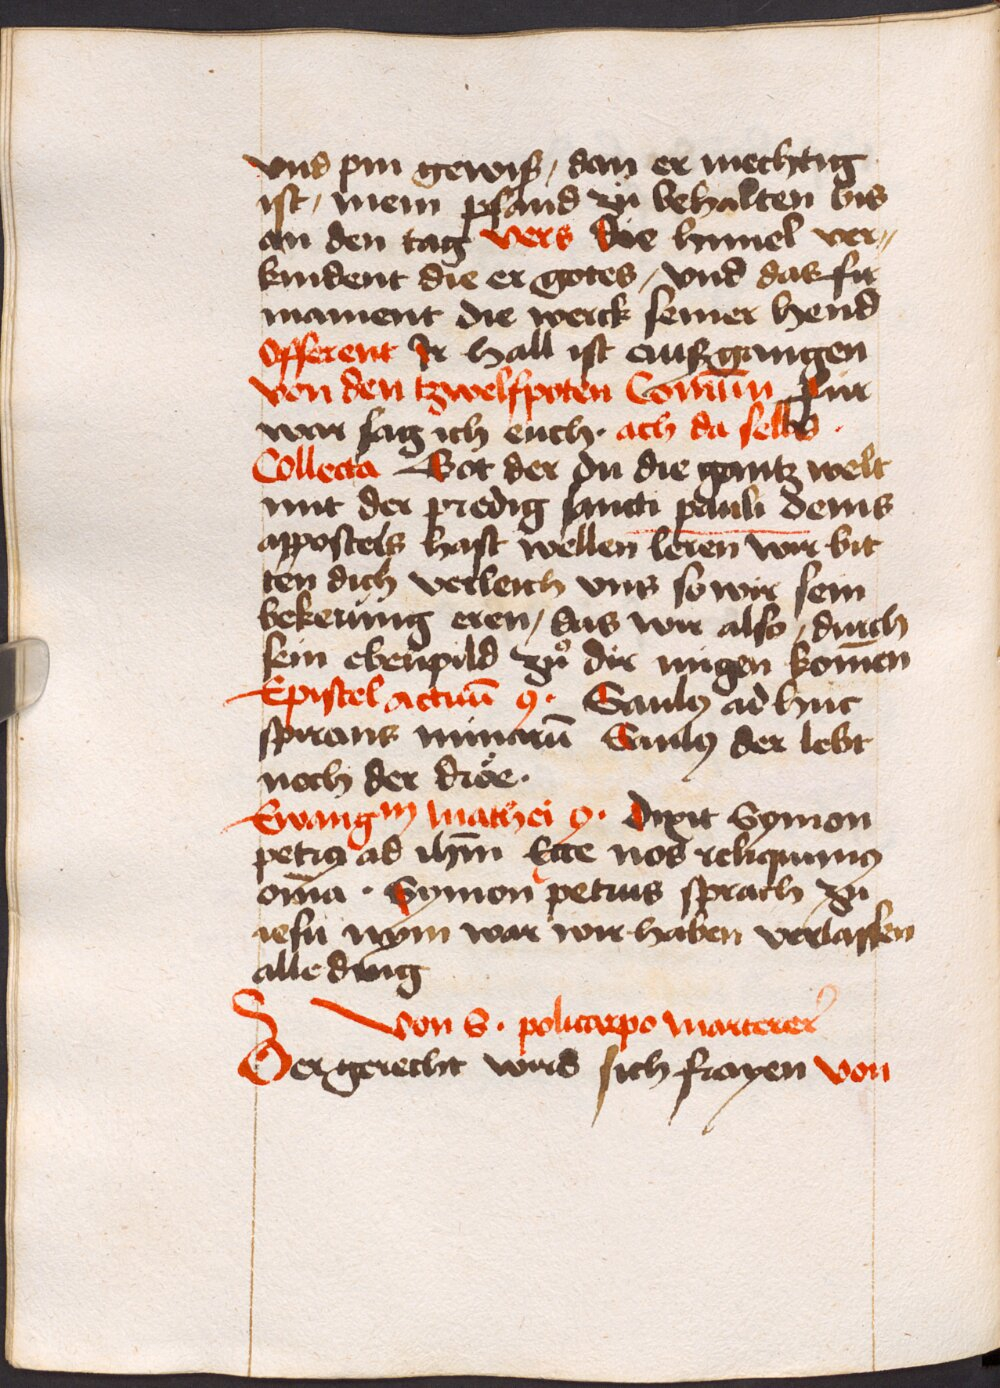 vnd pin gewiß / dan er mechtig
ist / mein pfand zu behalten bis
an den tag vers Die himel ver//
kindent die er gotes / vnd das fir
mament die werck seiner hend
Offerent Ir hall ist außgangen
von den tzwelfpoten Comūm Fur
war sag ich euch · ach da selbs ·
Collecta Got der du die gantz welt
mit der predig sancti pauli deins
appostels hast wellen leren wir bit
ten dich verleich vns so wir sein
bekerung eren / das wir also / durch
sein ebenpild zuͦ dir mügen kom̄en
Epistel actuū 9 · Saulꝰ ad huc
spirans minarū Saulꝰ der lebt
noch der dröe ·
Ewangm mathei 9 · Dixit Symon
petrꝰ ad ihm̄ Ecce nos reliquimꝰ
om̄ia · Symon petrus sprach zu
iesu nym war wir haben verlassen
alle ding
Von S · policarpo marterer
Der gerecht wird sich frayen von